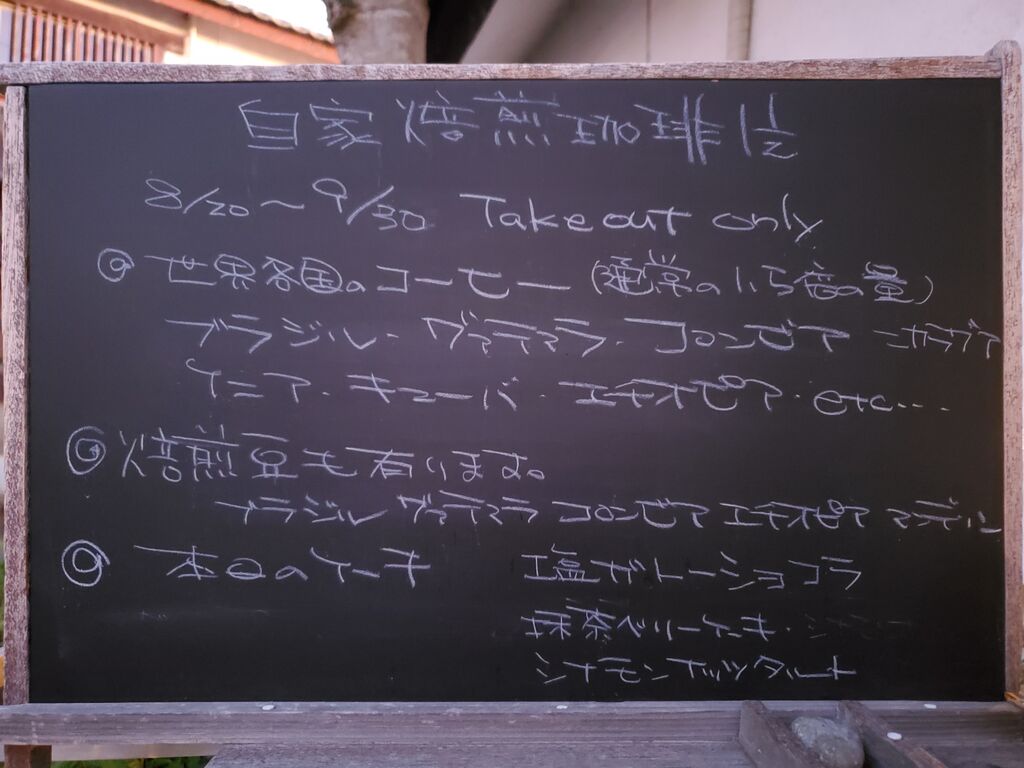 自家焙煎珈琲 1 1/2
8/20〜9/30 Take out only
◎世界各国のコーヒー (通常の1.5倍の量)
ブラジル・グァテマラ・コロンビア ニカラグア
ケニア・キューバ・エチオピア・etc…
◎焙煎豆も有ります。
ブラジル グァテマラ コロンビア エチオピア マンデリン
◎本日のケーキ 塩ガトーショコラ
抹茶ベリーケーキ・
シナモンナッツタルト